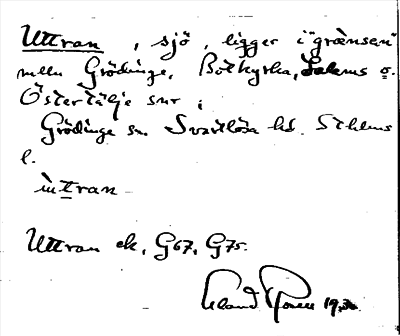 Uttran, sjö, ligger i "gränsen"
mellan Grödinge, Botkyrka, Salems o.
Östertälje snr i
Grödinge sn. Svartlösa hd. Sthlms
l.
ùtran
Uttran ek, G67, G75.